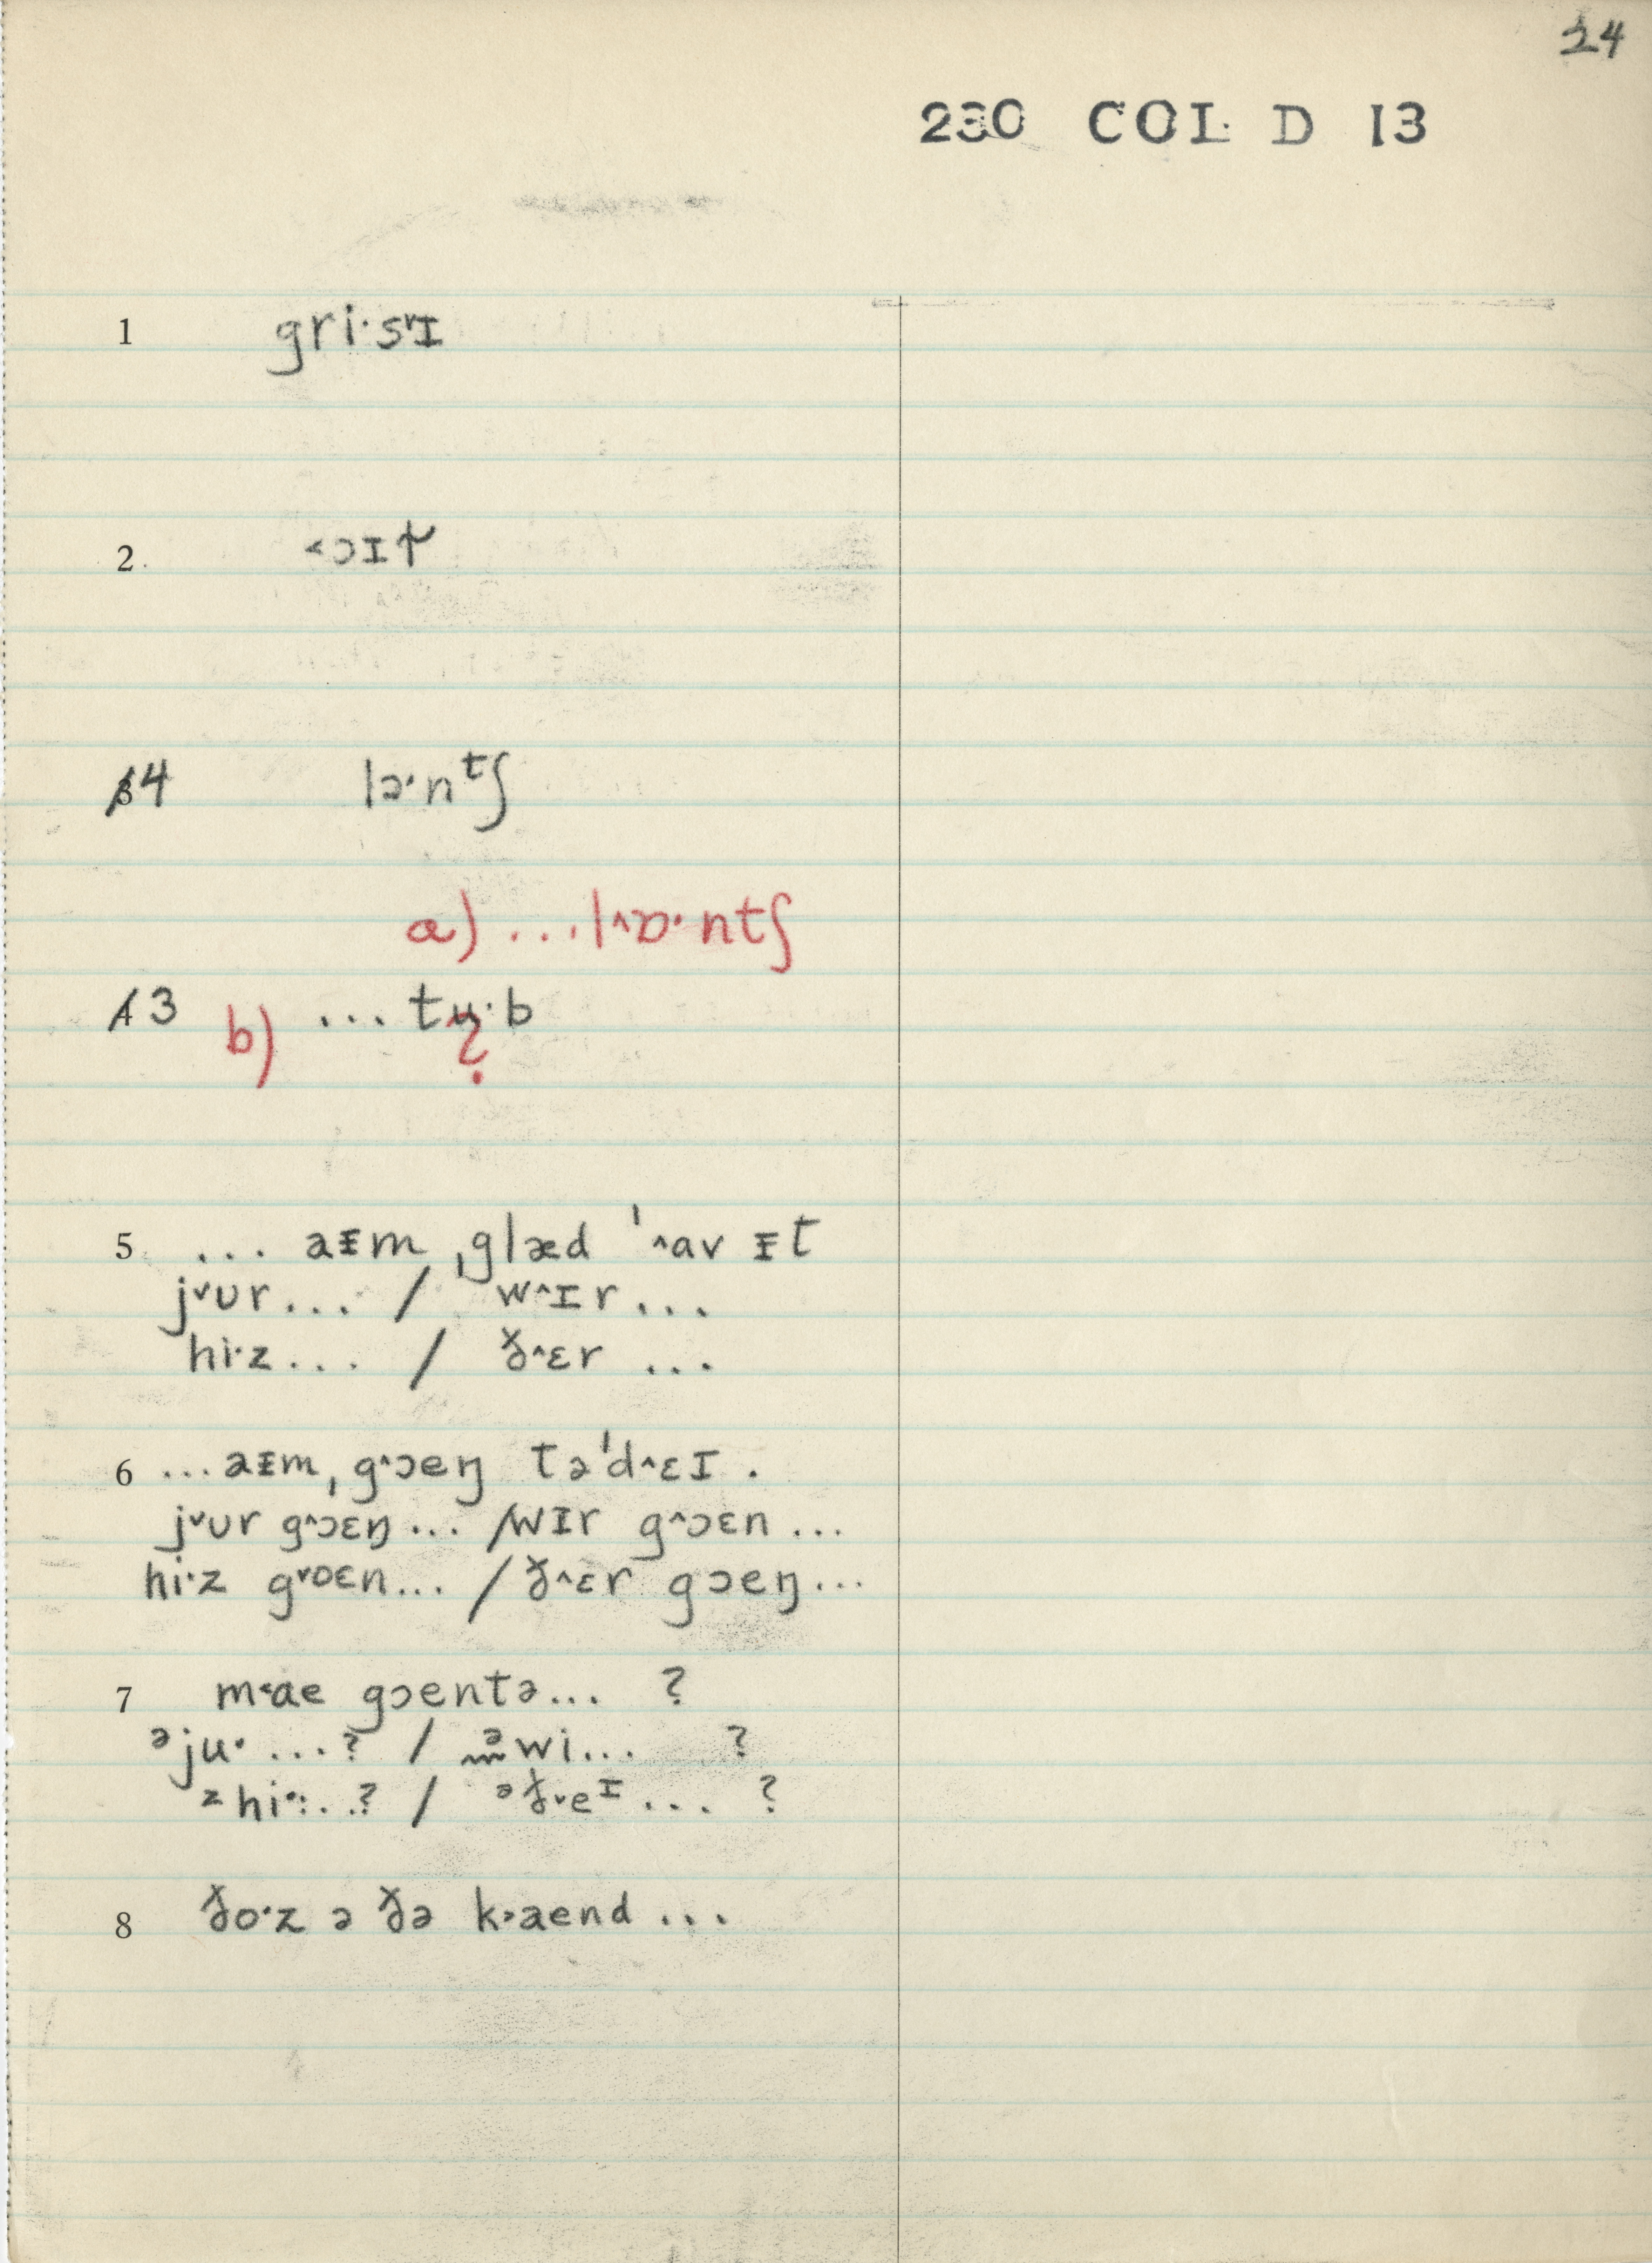 24
230 COL D 13
1 gri·s˅ɪ
2. ˂ɔɪɫ
4 lɔ·nᵗʃ
a) ...l˄ɒ·ntʃ
3 b) ... tʉ·b
?
5. ... aᵻm ˌglæd ˈ˄av ᵻt
j˅ʊr... / w˄ɪr...
hi·z... / ð˄ɛr ...
6 ...aᵻm ˌg˄ɔeŋ təˈd˄ɛɪ.
j˅ʊr g˄ɔɛŋ... / wɪr g˄ɔɛn...
hi·z g˅ɒɛn... / ð˄ɛr gɔeŋ...
7 m˂ae gɔentə... ?
ᵊju· ...? / ᵊwi... ?
ᶻhi·...? / ᵊð˅eᶦ... ?
8 ðo·z ə ðə k˃aend ...